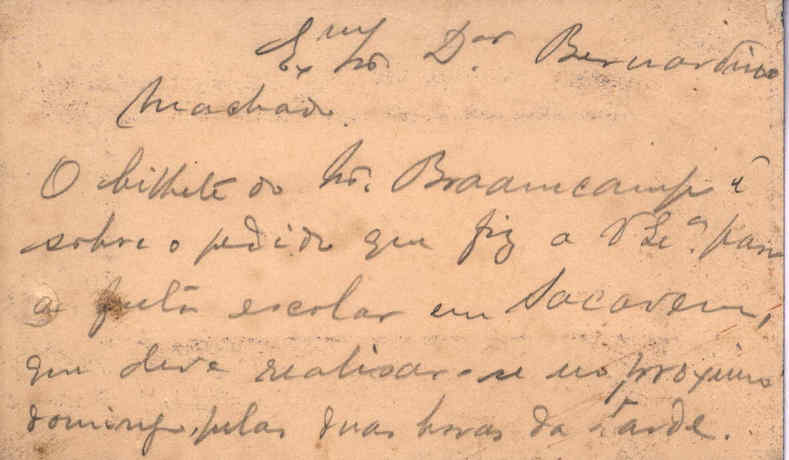 Exmo Sr. Dor Bernardino
Machado.
O bilhete do Sr. Braamcamp é
sobre o pedido que fiz a V Exª. para
a festa escolar em Sacavem,
que deve realisar-se no proximo
domingo, pelas duas horas da tarde.